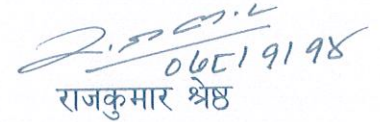 ०७८।१।१४
राजकुमार श्रेष्ठ